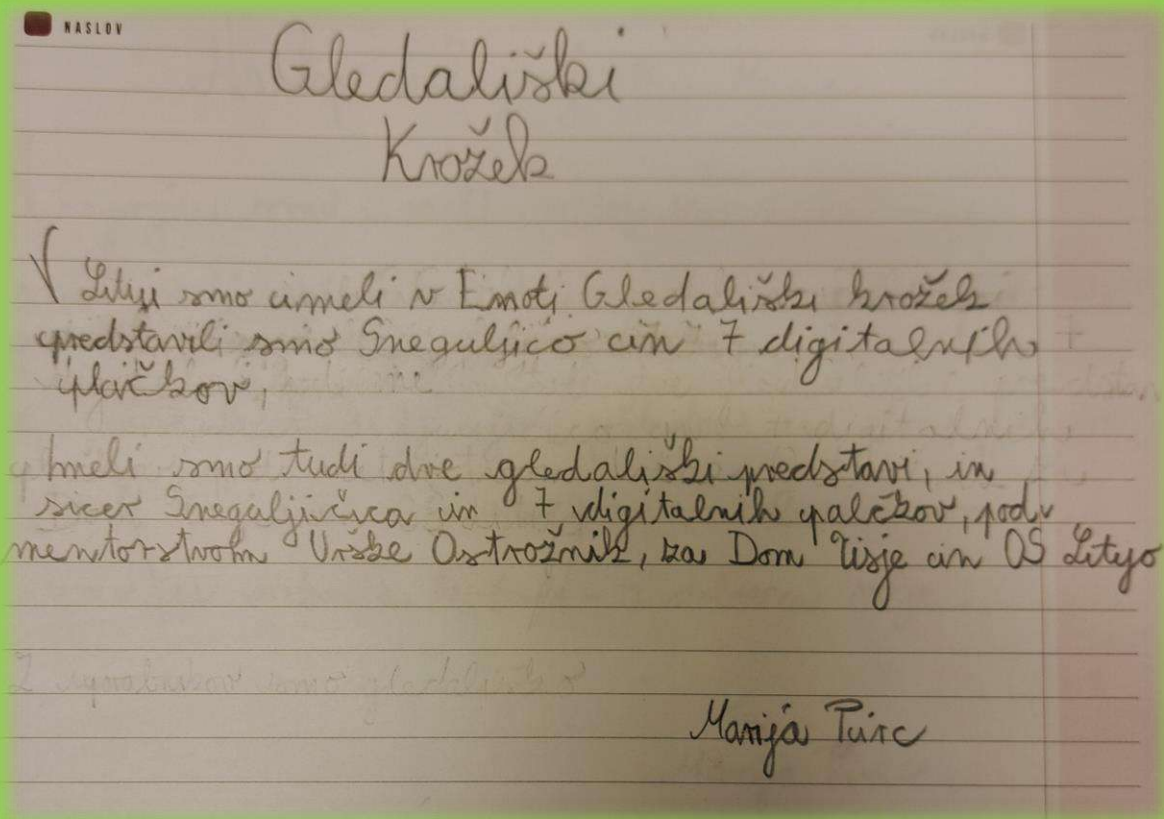 NASLOV
Gledališki
Krožek
V Litiji smo imeli v Emoti Gledališki krožek
predstavili smo Sneguljico in 7 digitalnih
palčkov,
Imeli smo tudi dve gledališki predstavi, in
sicer Snegaljičica in 7 digitalnih palčkov, pod
mentorstvom Urške Ostrožnik, za Dom Tisje in OŠ Litijo
Marija Purc